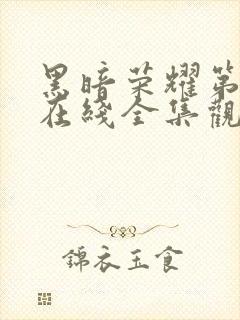 黑暗荣耀第
在綫全集觀
錦衣玉食